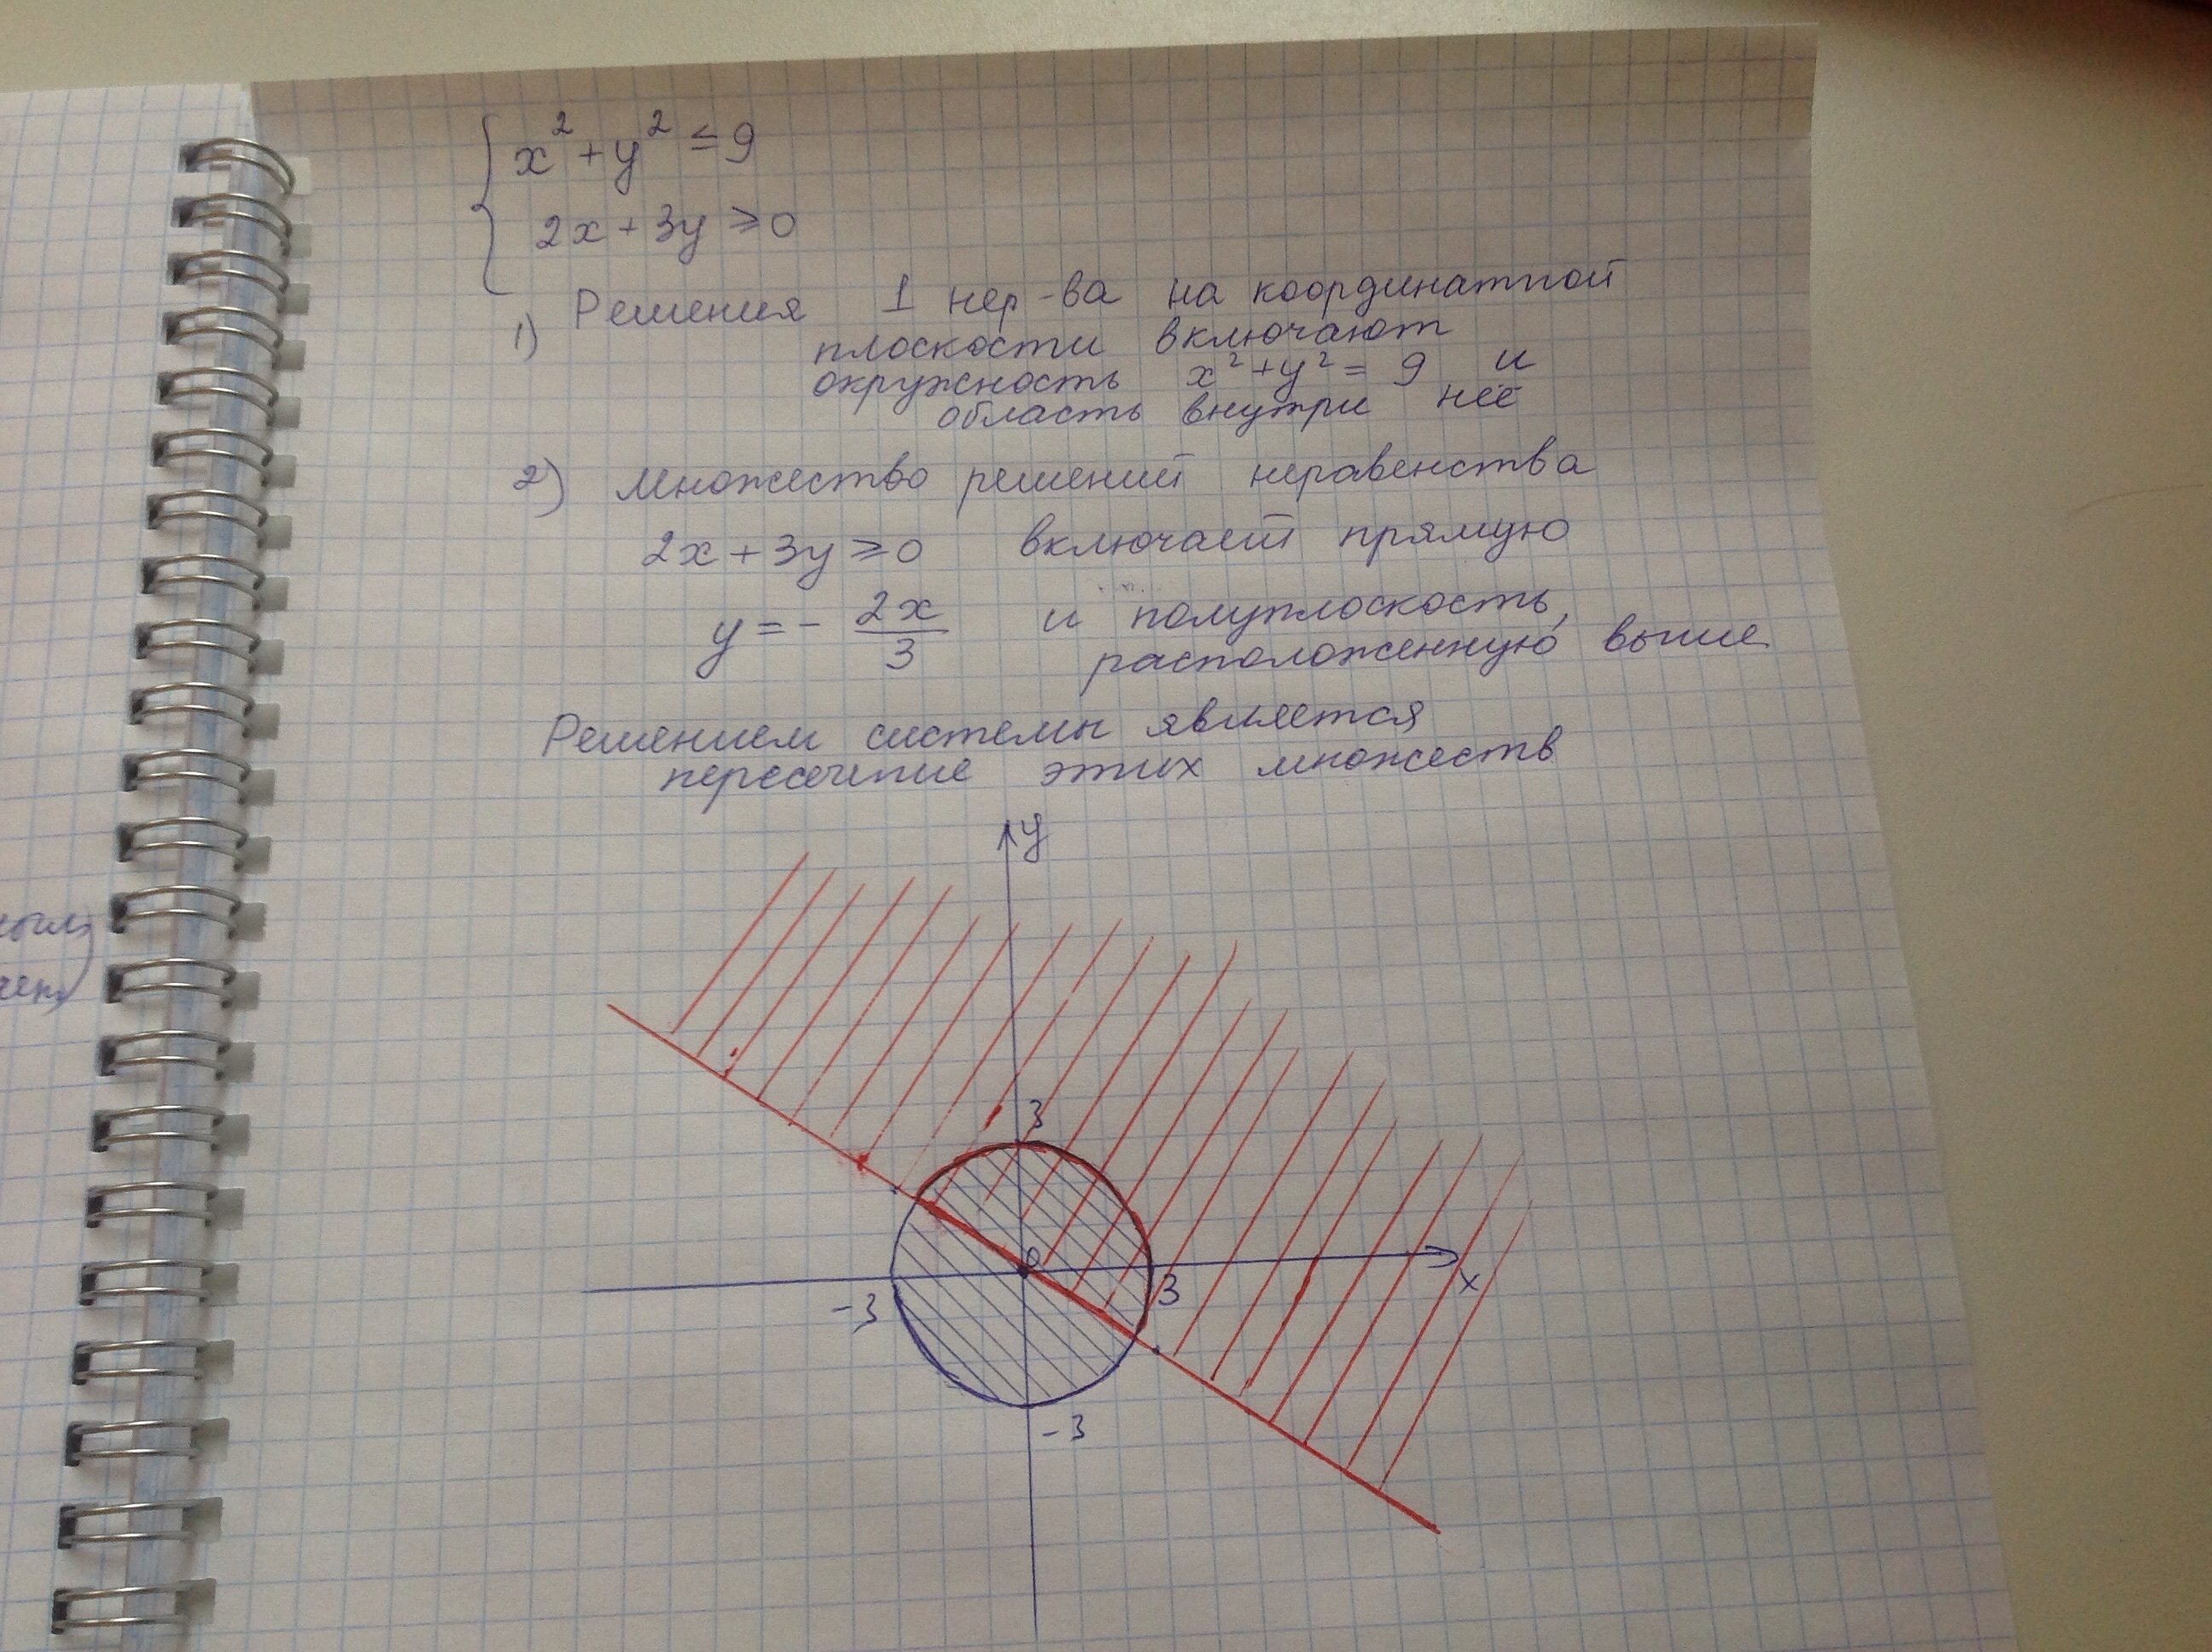 x² + y² ≤ 9
2x + 3y ≥ 0
1) Решения 1 нер-ва на координатной
плоскости включают
окружность x² + y² = 9 и
область внутри неё
2) множество решений неравенства
2x + 3y ≥ 0 включает прямую
y = - 2x/3 и полуплоскость,
расположенную выше
Решением системы является
пересечение этих множеств
y
3
0
3
x
-3
-3